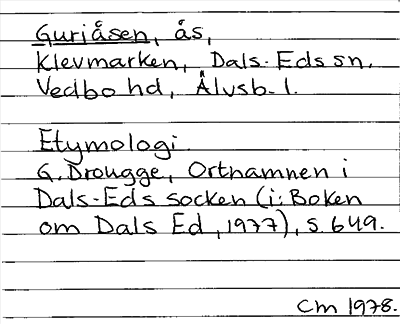 Gurjåsen, ås,
Klevmarken, Dals-Eds sn.
Vedbo hd, Älvsb. l.
Etymologi
G. Drougge, Ortnamnen i
Dals-Eds socken (i: Boken
om Dals Ed, 1977), s. 649.
CM 1978.